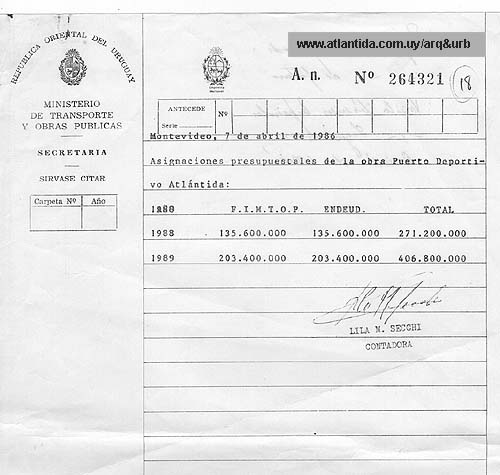 www.atlantida.com.uy/arq&urb
REPUBLICA ORIENTAL DEL URUGUAY
MINISTERIO
DE TRANSPORTE
Y OBRAS PUBLICAS
SECRETARIA
SIRVASE CITAR
Carpeta Nº Año
A. n. Nº 264321 18
ANTECEDE Nº
Serie
Montevideo, 7 de abril de 1986
Asignaciones presupuestales de la obra Puerto Deporti-
vo Atlántida:
F.I.M.T.O.P. ENDEUD. TOTAL
1988 135.600.000 135.600.000 271.200.000
1989 203.400.000 203.400.000 406.800.000
LILA M. SECCHI
CONTADORA